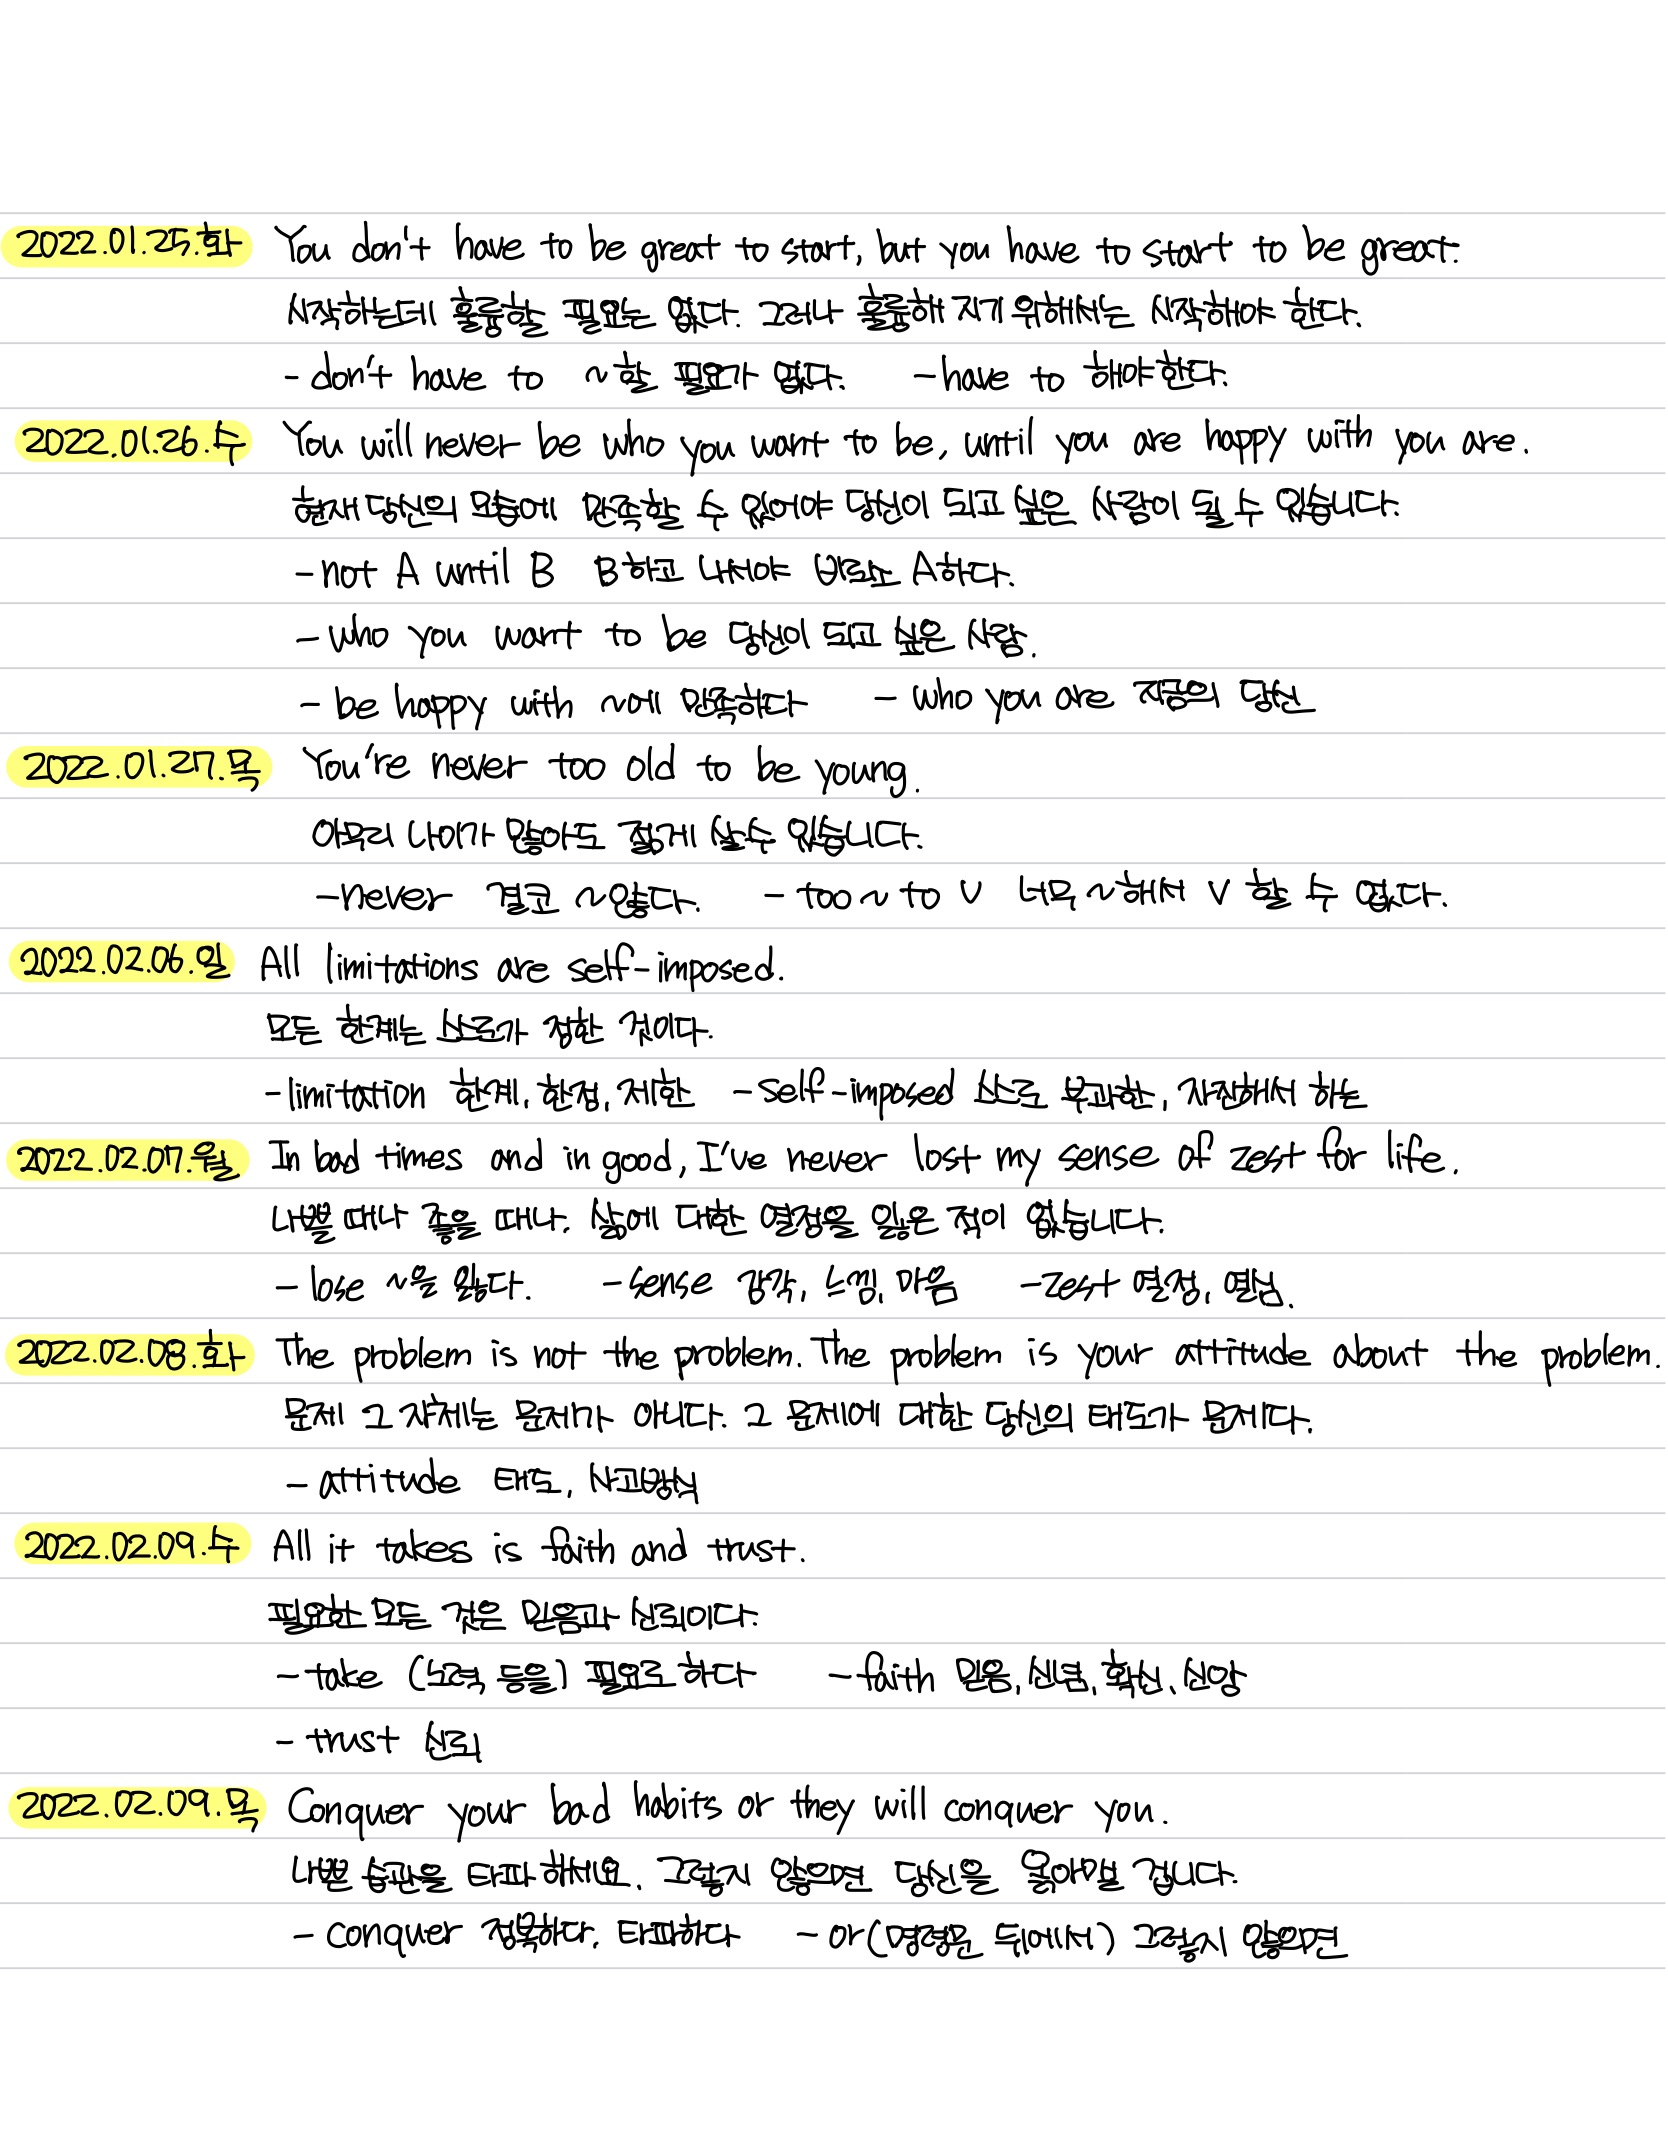 2022.01.25.화 You don't have to be great to start, but you have to start to be great.
시작하는데 훌륭할 필요는 없다. 그러나 훌륭해 지기 위해서는 시작해야 한다.
- don't have to ~할 필요가 없다. - have to 해야한다.
2022.01.26.수 You will never be who you want to be, until you are happy with you are.
현재 당신의 모습에 만족할 수 있어야 당신이 되고 싶은 사람이 될 수 있습니다.
- not A until B B하고 나서야 비로소 A하다.
- who you want to be 당신이 되고 싶은 사람.
- be happy with ~에 만족하다 - who you are 지금의 당신
2022.01.27.목 You're never too old to be young.
아무리 나이가 많아도 젊게 살수 있습니다.
- never 결코 ~않다. - too ~ to V 너무 ~해서 V 할 수 없다.
2022.02.06.일 All limitations are self-imposed.
모든 한계는 스스로가 정한 것이다.
- limitation 한계, 한정, 제한 - self-imposed 스스로 부과한, 자진해서 하는
2022.02.07.월 In bad times and in good, I've never lost my sense of zest for life.
나쁠 때나 좋을 때나. 삶에 대한 열정을 잃은 적이 없습니다.
- lose ~을 잃다. - sense 감각, 느낌, 마음 - zest 열정, 열심.
2022.02.08.화 The problem is not the problem. The problem is your attitude about the problem.
문제 그 자체는 문제가 아니다. 그 문제에 대한 당신의 태도가 문제다.
- attitude 태도, 사고방식
2022.02.09.수 All it takes is faith and trust.
필요한 모든 것은 믿음과 신뢰이다.
- take (노력, 등을) 필요로 하다 - faith 믿음, 신념, 확신, 신앙
- trust 신뢰
2022.02.09.목 Conquer your bad habits or they will conquer you.
나쁜 습관을 타파 하세요. 그렇지 않으면 당신을 옭아맬 겁니다.
- conquer 정복하다. 타파하다 - or (명령문 뒤에서) 그렇지 않으면